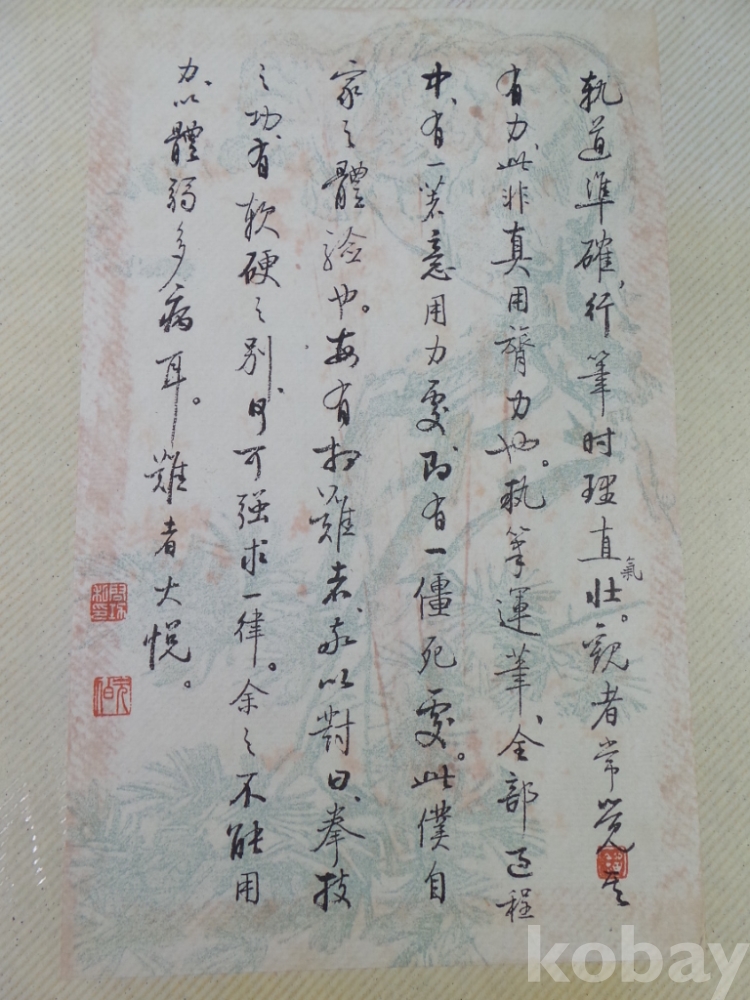 軌道準確，行筆时理直氣壯。観者常覺其
有力，此非真用膂力也。執筆運筆，全部过程
中，有一着意用力處，即有一僵死處。此僕自
家之體驗也。每有相難者，我以對曰，拳技
之功，有軟硬之別，可强求一律。余之不能用
力，以體弱多病耳。難者大悦。
kobay